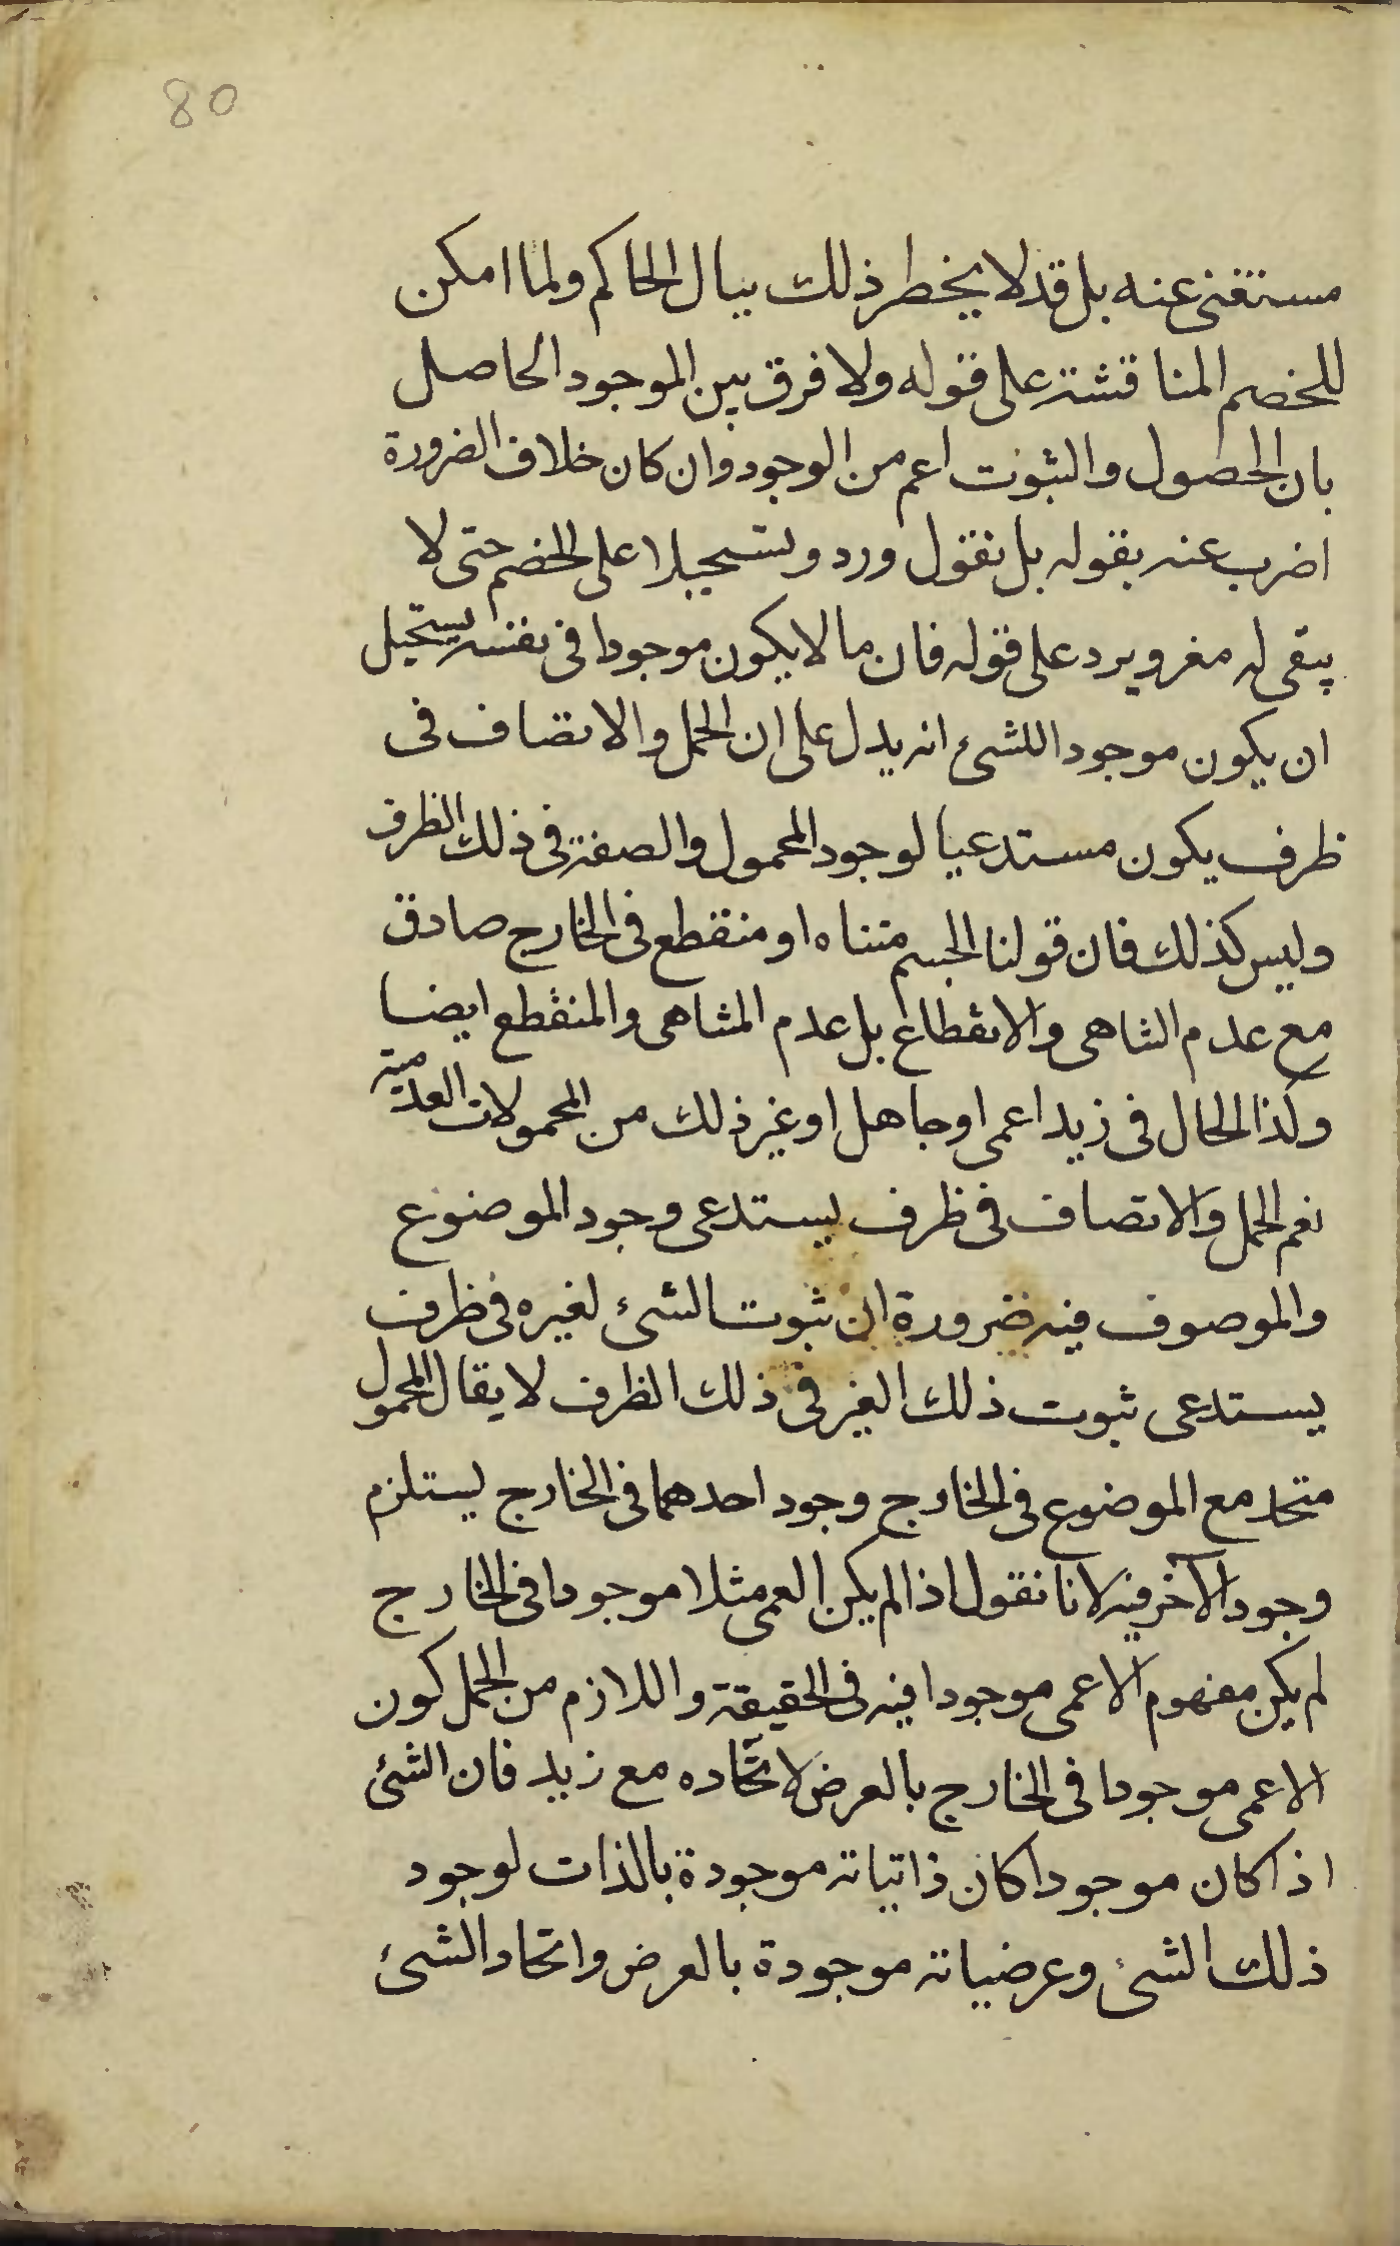 80
مستغنى عنه بل قد لا يخطر ذلك ببال الحاكم ولما امكن
للخصم المناقشة على قوله ولا فرق بين الموجود الحاصل
بان الحصول والثبوت اعم من الوجود وان كان خلاف الضرورة
اضرب عنه بقوله بل نقول ورد وتسجيلا على الخصم حتى لا
يبقى له مفر ويرد على قوله فان ما لا يكون موجودا فى نفسه يستحيل
ان يكون موجودا للشئ انه يدل على ان الحمل والاتصاف فى
ظرف يكون مستدعيا لوجود المحمول والصفة فى ذلك الظرف
وليس كذلك فان قولنا الجسم متناه او منقطع فى الخارج صادق
مع عدم التناهى والانقطاع بل عدم المتناهى والمنقطع ايضا
وكذا الحال فى زيد اعمى او جاهل او غير ذلك من المحمولات العدمية
نعم الحمل والاتصاف فى ظرف يستدعى وجود الموضوع
والموصوف فيه ضرورة ان ثبوت الشئ لغيره فى ظرف
يستدعى ثبوت ذلك الغير فى ذلك الظرف لا يقال المحمول
متحد مع الموضوع فى الخارج وجود احدهما فى الخارج يستلزم
وجود الآخر فيه لانا نقول اذا لم يكن العمى مثلا موجودا فى الخارج
لم يكن مفهوم الاعمى موجودا فيه فى الحقيقة واللازم من الحمل كون
الاعمى موجودا فى الخارج بالعرض لاتحاده مع زيد فان الشئ
اذا كان موجودا كان ذاتياته موجودة بالذات لوجود
ذلك الشئ وعرضياته موجودة بالعرض واتحاد الشئ